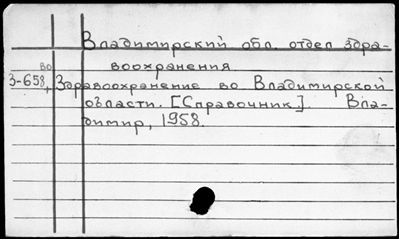 Владимирский обл. отдел здра-
воохранения
во
3-658, Здравоохранение во Владимирской
области. [Справочник]. Вла-
димир, 1958.